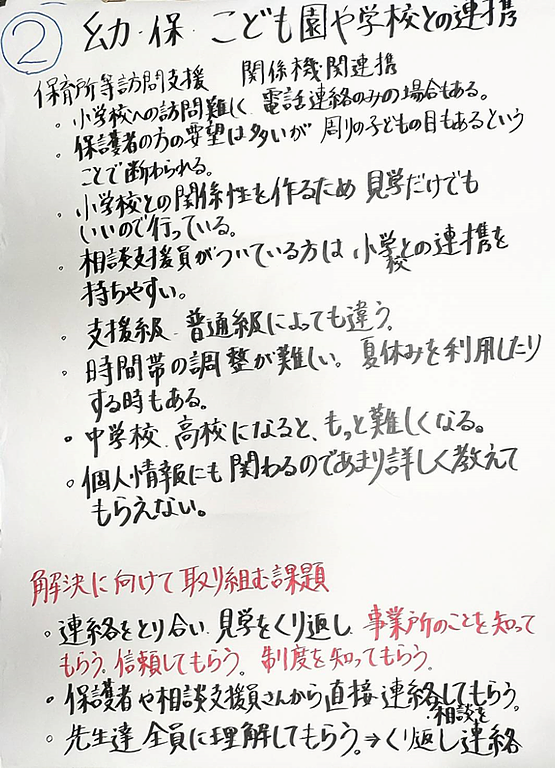 ② 幼・保・こども園や学校との連携
保育所等訪問支援 関係機関連携
。小学校への訪問難しく、電話連絡のみの場合もある。
。保護者の方の要望は多いが 周りの子どもの目もあるという
ことで断わられる。
。小学校との関係性を作るため 見学だけでも
いいので行っている。
。相談支援員がついている方は 小学校との連携を
持ちやすい。
。支援級、普通級によっても違う。
。時間帯の調整が難しい。 夏休みを利用したり
する時もある。
・中学校、高校になると、もっと難しくなる。
。個人情報にも関わるのであまり詳しく教えて
もらえない。
解決に向けて取り組む課題
。連絡をとり合い、見学をくり返し、事業所のことを知って
もらう。信頼してもらう。 制度を知ってもらう。
・保護者や相談支援員さんから直接 連絡してもらう。
・相談を
。先生達 全員に理解してもらう。→くり返し連絡